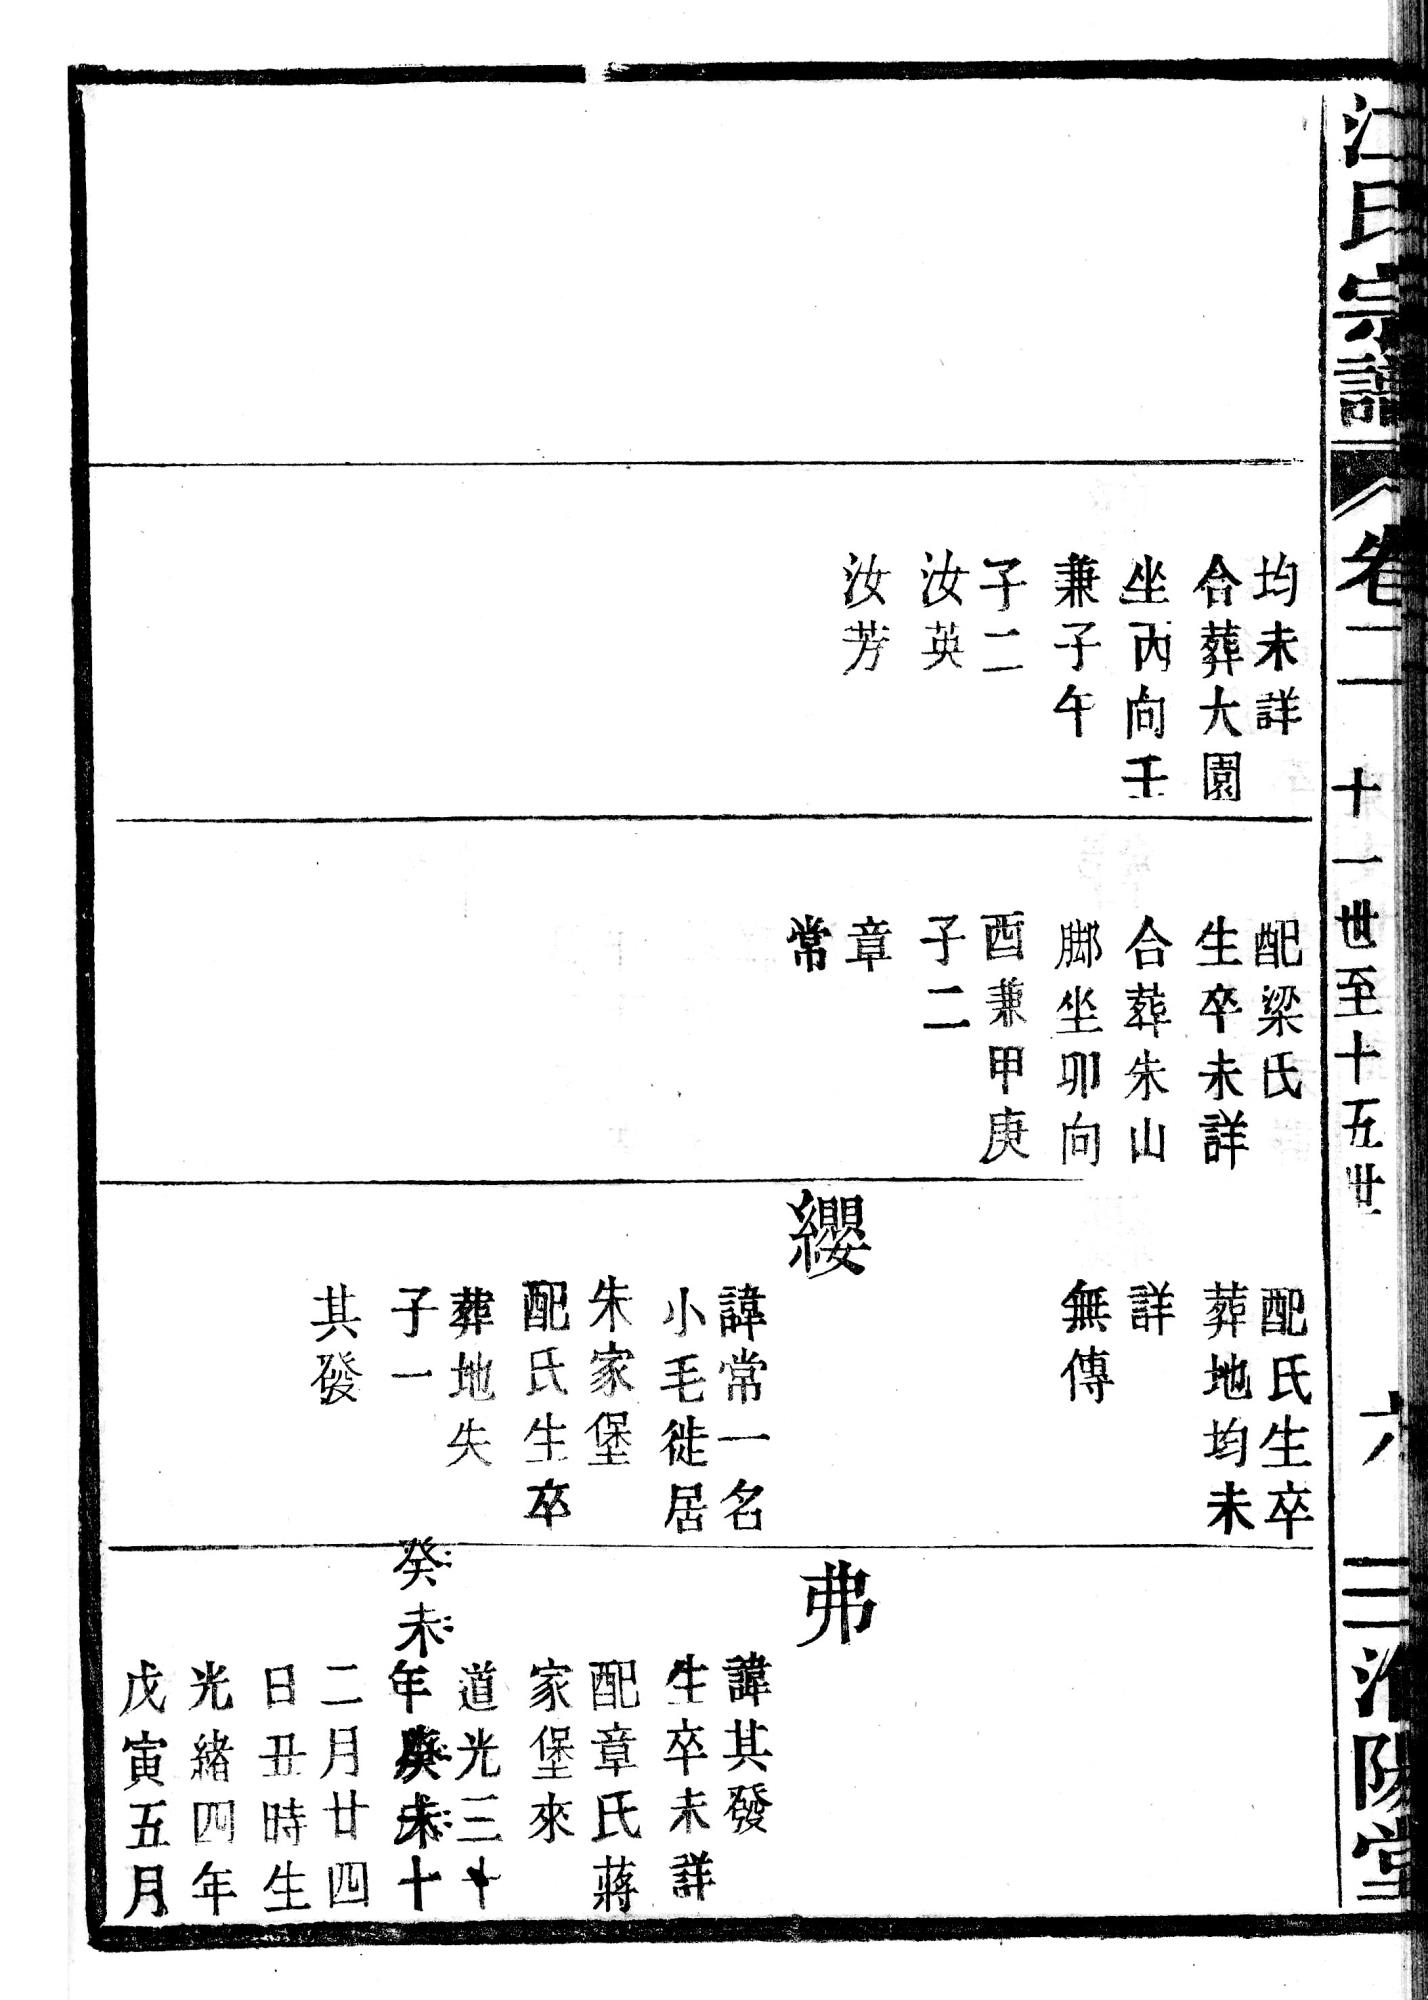 江氏宗譜
卷二
十一世至十五世
六
淮陽堂
均未詳
合葬大園
坐丙向壬
兼子午
子二
汝英
汝芳
配梁氏
生卒未詳
合葬朱山
脚坐卯向
酉兼甲庚
子二
章
常
配氏生卒
葬地均未
詳
無傳
纓
諱常一名
小毛徙居
朱家堡
配氏生卒
葬地失
子一
其發
弗
諱其發
生卒未詳
配章氏蔣
家堡來
道光三十
癸未年癸未十
二月廿四
日丑時生
光緒四年
戊寅五月